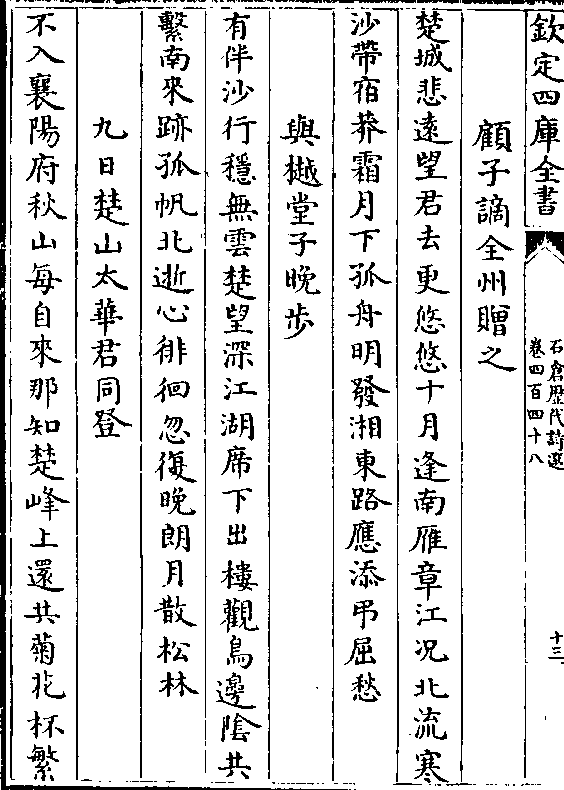 欽定四庫全書
石倉歴代詩選
卷四百四十八
十三
顧子謫全州贈之
楚城悲遠望君去更悠悠十月逢南雁章江况北流寒
沙帶宿莽霜月下孤舟明發湘東路應添弔屈愁
與樾堂子晚步
有伴沙行穩無雲楚望深江湖席下出樓觀鳥邊陰共
繫南來跡孤帆北逝心徘徊忽復晚朗月散松林
九日楚山太華君同登
不入襄陽府秋山每自來那知楚峰上還共菊花杯繁